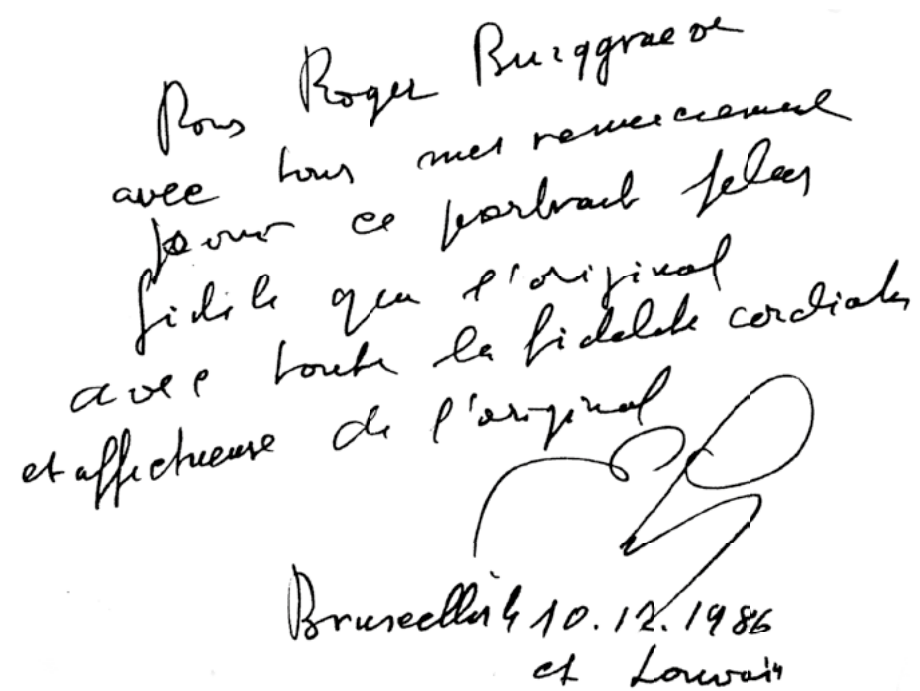 Pour Roger Burggraeve
avec tous mes remerciement
pour ce portrait plus
fidèle que l'original
avec toute la fidélité cordiale
et affectueuse de l'original
Bruxelles le 10.12.1986
et Louvain